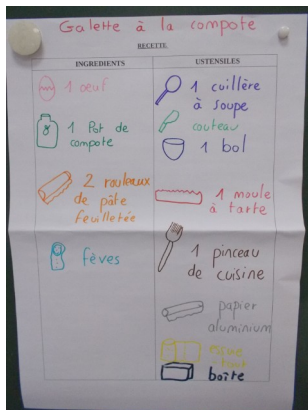 Galette à la compote
RECETTE
INGREDIENTS
1 oeuf
1 Pot de
compote
2 rouleaux
de pâte
feuilletée
fèves
USTENSILES
1 cuillère
à soupe
couteau
1 bol
1 moule
à tarte
1 pinceau
de cuisine
papier
aluminium
essuie
tout
boîte